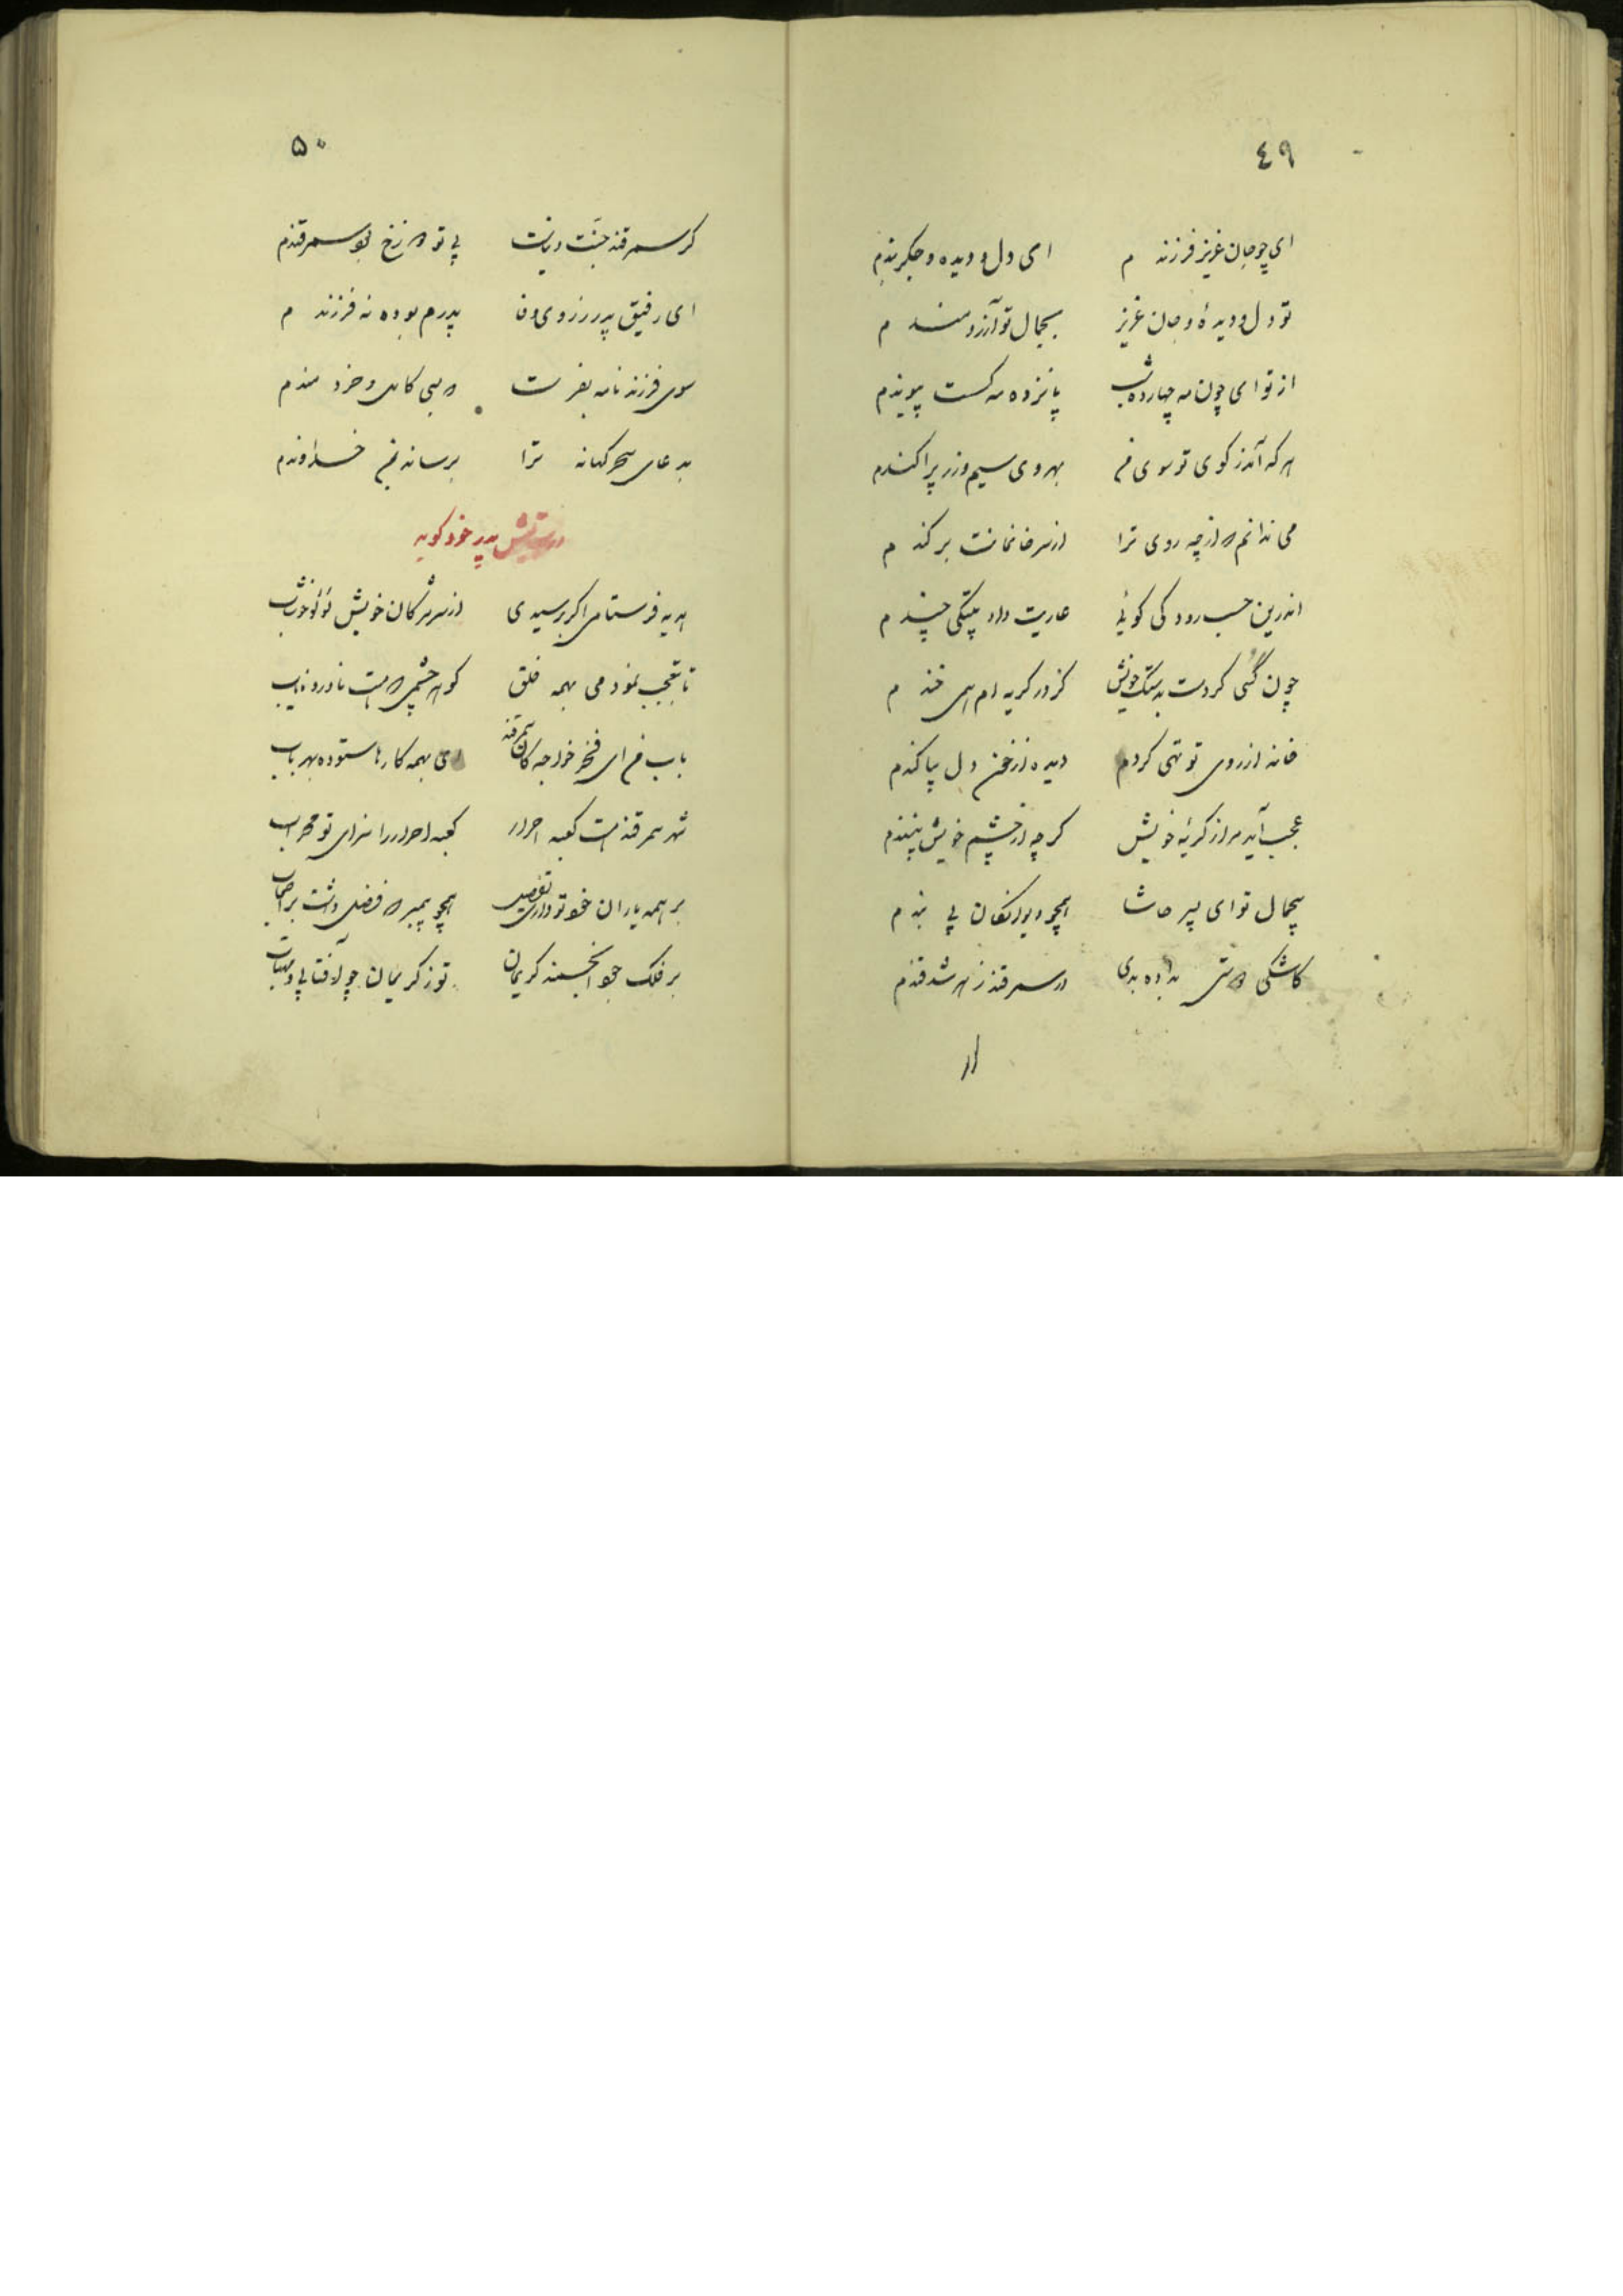 ٤٩
ای چو جان عزیز فرزندم ای دل و دیده و جگربندم
تو دل و دیدهٔ و جان عزیز بجمال تو آرزومندم
از تو ای چون مه چهارده شب پانزده مه گسست پیوندم
هر که آمد ز کوی تو سوی من بر وی سیم و زر پراکندم
می ندانم که از چه روی ترا از سر خانمانت برکندم
اندرین حسب رودکی گوئی عاریت داد بیتکی چندم
چون کسی کردمت بدستک خویش کز در گریه‌ام همی خندم
خانه از روی تو تهی کردم دیده از خون دل بیاکندم
عجب آید مرا ز گریهٔ خویش گرچه از چشم خویش بپسندم
بیجمال تو ای پسر حاشا همچو دیوانگان پی بندم
کاشکی که تنی بداده بدی در سمرقند زهر شد قندم
۵۰
گر سمرقند جنّت دنیاست بی تو دوزخ بود سمرقندم
ای رفیق پدر ز روی وفا پدرم بوده نه فرزندم
سوی فرزند نامه بفرست که بسی کامل و خردمندم
بدعای سحرگهانه ترا برساند بمن خداوندم
درستایش پدر خود گوید
هدیه فرستامی اگر برسیدی از سر مژگان خویش لؤلؤ خوشاب
تا بتعجب نمودمی بهمه خلق گوهر چشمی که هست نادر و نایاب
باب من ای فخر خواجه‌گان سمرقند ای بهمه کارها ستوده بهر باب
شهر سمرقند است کعبه احرار کعبه احرار را سرای تو محراب
بر همه یاران خود تو داری تفضیل همچو پیمبر که فضل داشت بر اصحاب
بر فلک جود انجمند کریمان تو ز کریمان چو آفتابی و مهتاب
از